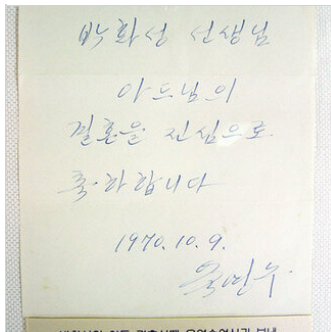 박화성 선생님
아드님의
결혼을 진심으로
축하합니다
1970. 10. 9.
육영수